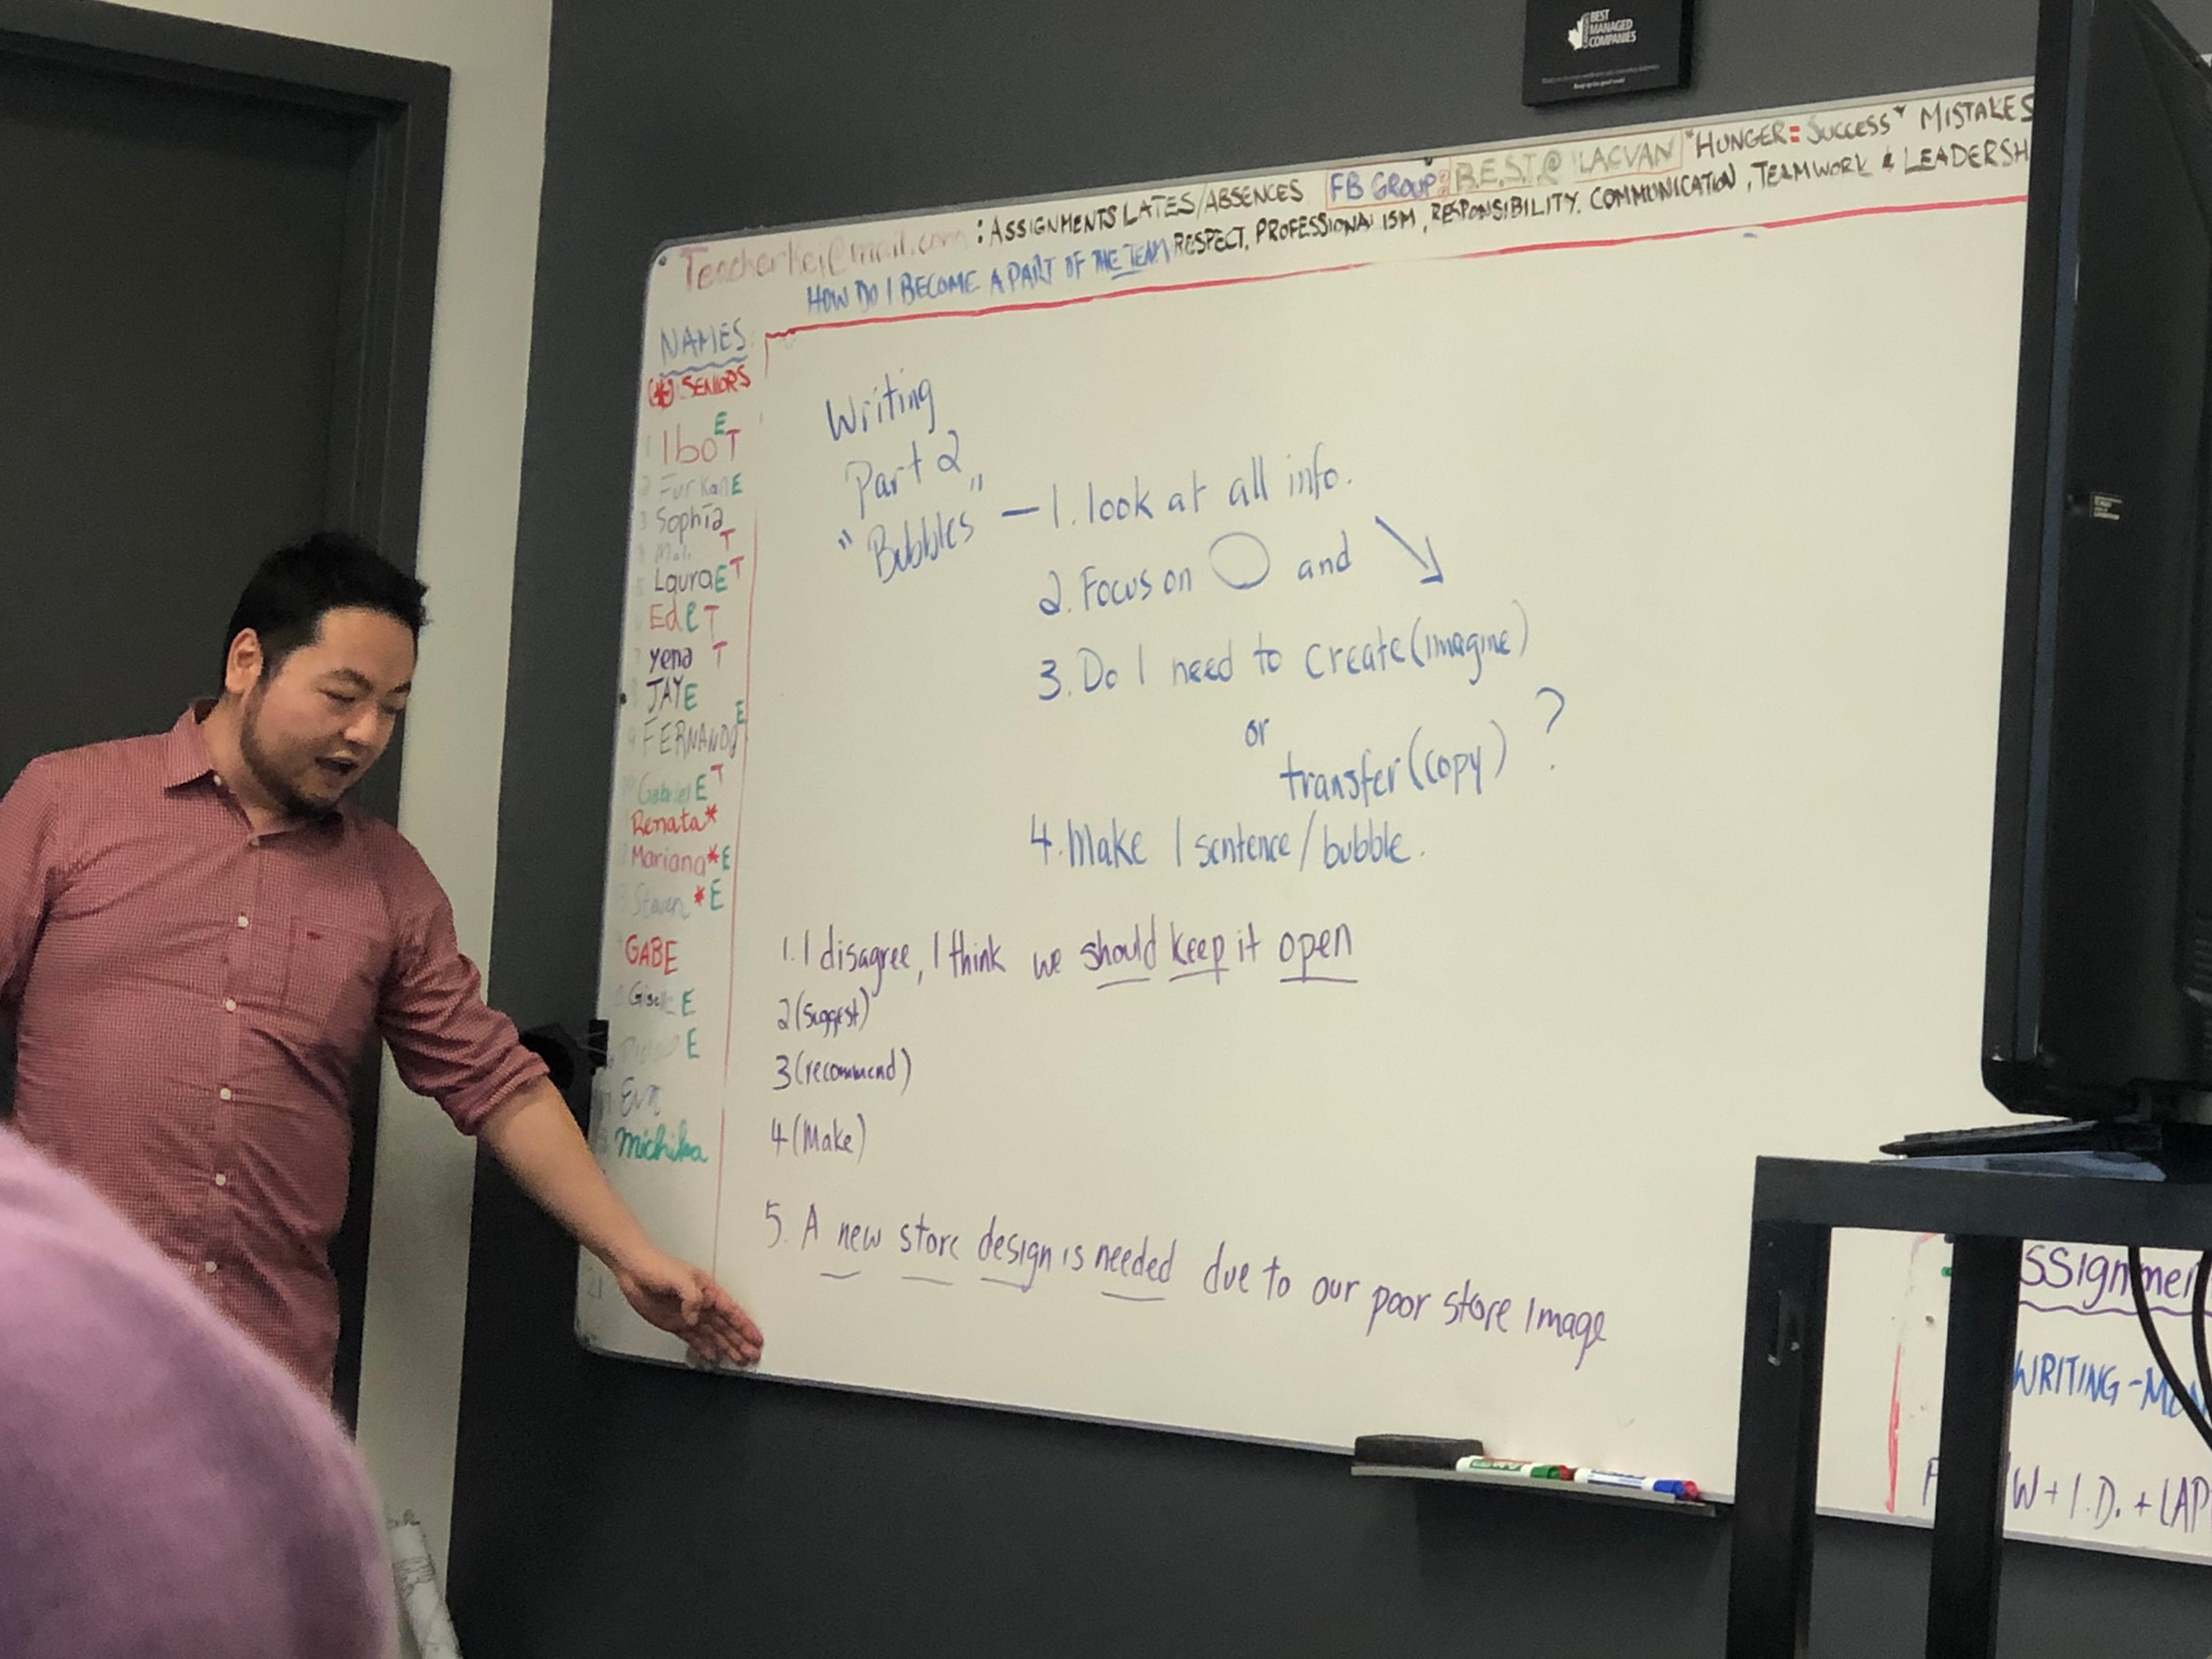 BEST
MANAGED
COMPANIES
TeacherKei@mail.com : ASSIGNMENTS LATES/ABSENCES FB GROUP: B.E.S.T.@ ILACVAN "HUNGER=SUCCESS" MISTAKES
HOW DO I BECOME A PART OF THE TEAM RESPECT, PROFESSIONALISM, RESPONSIBILITY. COMMUNICATION, TEAMWORK & LEADERSH
NAMES
(*) SENIORS
1 Ibo E T
2 Furkan E
3 Sophia
T
Laura E T
Ed E T
7 yena T
JAY E
9 FERNANDO E
Gabriel E T
Renata *
Mariana * E
Steven * E
GABE
E
E
Eva
Michika
21
Writing
Part 2
"Bubbles" — 1. look at all info.
2. Focus on and
3. Do I need to create (imagine)
or
transfer (copy) ?
4. Make 1 sentence/bubble.
1. I disagree, I think we should keep it open
2 (Suggest)
3 (recommend)
4 (Make)
5. A new store design is needed due to our poor store image
ssignmen
WRITING -
W + I.D. + LAP